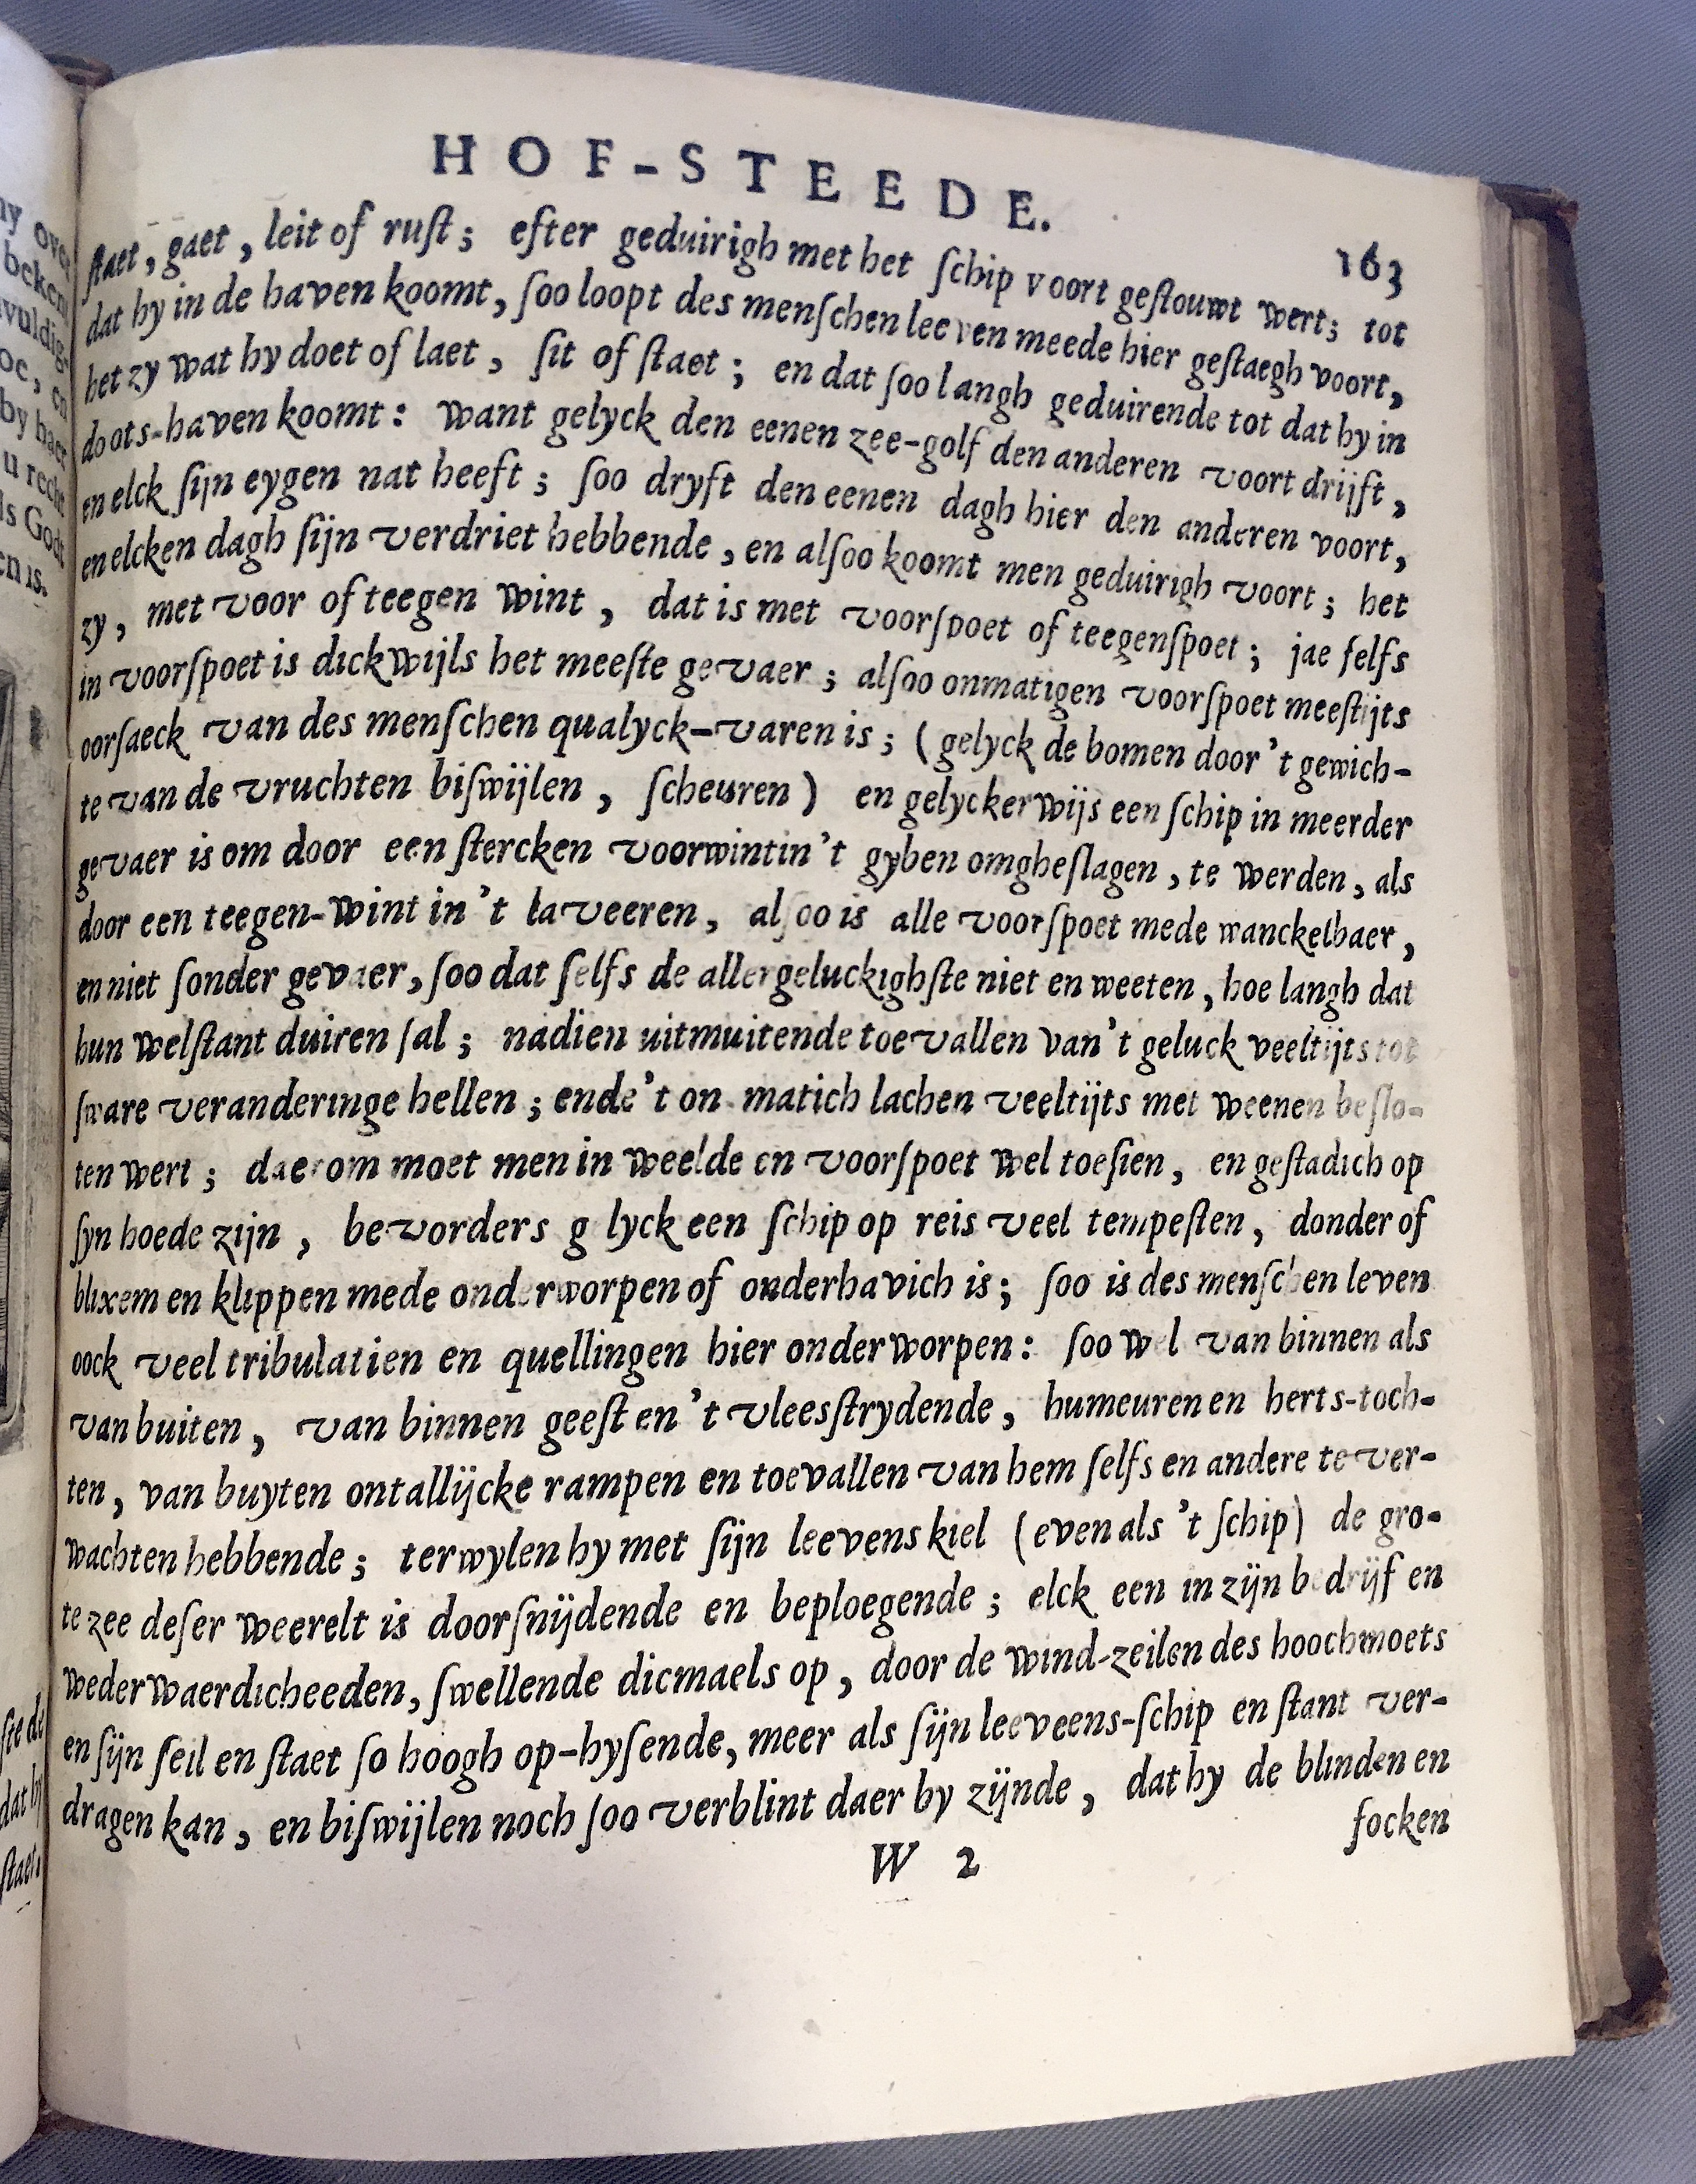 HOF-STEEDE.
163
ſtaet, gaet, leit of ruſt; eſter geduirigh met het ſchip voort geſtouwt wert; tot
dat hy in de haven koomt, ſoo loopt des menſchen leeven meede hier geſtaegh voort,
het zy wat hy doet of laet, ſit of ſtaet; en dat ſoo langh geduirende tot dat hy in
doots-haven koomt: want gelyck den eenen zee-golf den anderen voort drijft,
en elck ſijn eygen nat heeft; ſoo dryft den eenen dagh hier den anderen voort,
en elcken dagh ſijn verdriet hebbende, en alſoo koomt men geduirigh voort; het
zy, met voor of teegen wint, dat is met voorſpoet of teegenſpoet; jae ſelfs
in voorſpoet is dickwijls het meeſte gevaer; alſoo onmatigen voorſpoet meeſtijts
oorſaeck van des menſchen qualyck-varen is; (gelyck de bomen door 't gewich-
te van de vruchten biſwijlen, ſcheuren) en gelyckerwijs een ſchip in meerder
gevaer is om door een ſtercken voorwint in 't gyben omgheſlagen, te werden, als
door een teegen-wint in 't laveeren, alſoo is alle voorſpoet mede wanckelbaer,
en niet ſonder gevaer, ſoo dat ſelfs de allergeluckighſte niet en weeten, hoe langh dat
hun welſtant duiren ſal; nadien uitmuitende toevallen van 't geluck veeltijts tot
ſware veranderinge hellen; ende 't on-matich lachen veeltijts met weenen beſlo-
ten wert; daerom moet men in weelde en voorſpoet wel toeſien, en geſtadich op
ſyn hoede zijn, bevorders g lyck een ſchip op reis veel tempeſten, donder of
blixem en klippen mede onderworpen of onderhavich is; ſoo is des menſchen leven
oock veel tribulatien en quellingen hier onderworpen: ſoo wel van binnen als
van buiten, van binnen geeſt en 't vlees ſtrydende, humeuren en herts-toch-
ten, van buyten ontallijcke rampen en toevallen van hem ſelfs en andere te ver-
wachten hebbende; terwylen hy met ſijn leevens kiel (even als 't ſchip) de gro-
te zee deſer weerelt is doorſnijdende en beploegende; elck een in zijn bedrijf en
wederwaerdicheeden, ſwellende dicmaels op, door de wind-zeilen des hoochmoets
en ſijn ſeil en ſtaet ſo hoogh op-hyſende, meer als ſijn leeveens-ſchip en ſtant ver-
dragen kan, en biſwijlen noch ſoo verblint daer by zijnde, dat hy de blinden en
W 2
focken